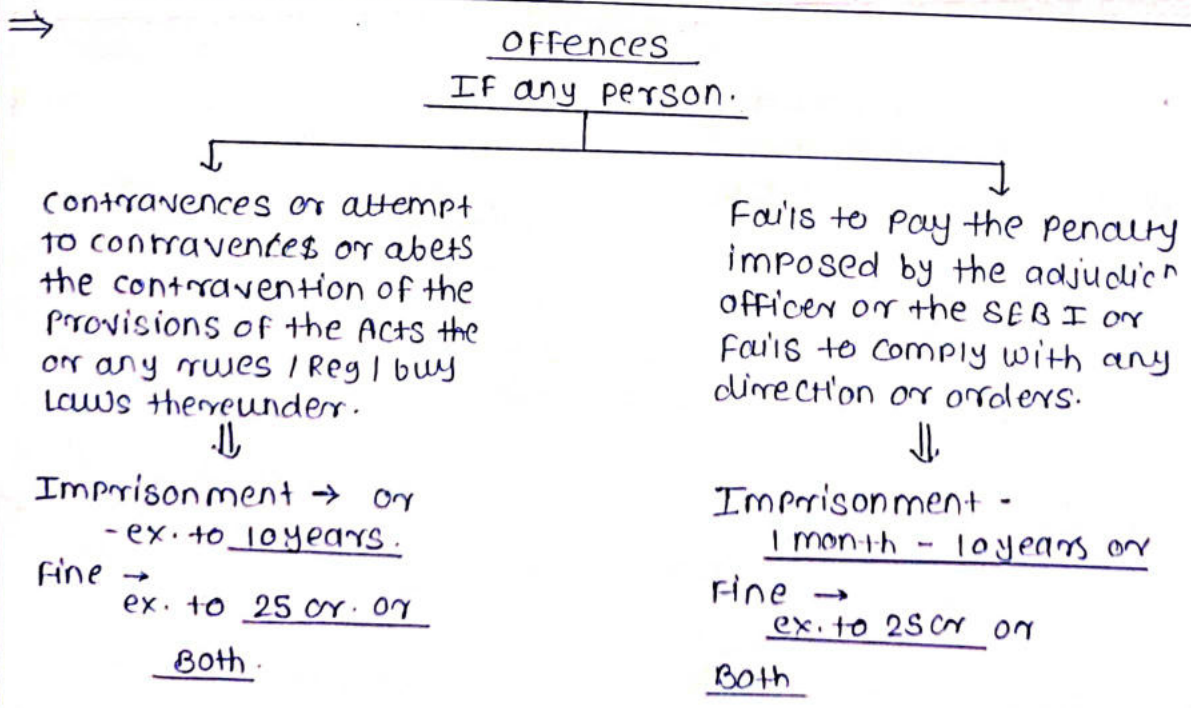 ⇒
OFFences
IF any person.
contravences or attempt
to contravences or abets
the contravention of the
Provisions of the Acts the
or any rules / Reg / buy
Laws thereunder.
⇓
Imprisonment → or
- ex. to 10 years.
Fine →
ex. to 25 cr. or
Both.
Fails to pay the penalty
imposed by the adjudicⁿ
officer or the SEBI or
Fails to comply with any
direction or orders.
⇓
Imprisonment -
1 month - 10 years or
Fine →
ex. to 25 cr or
Both